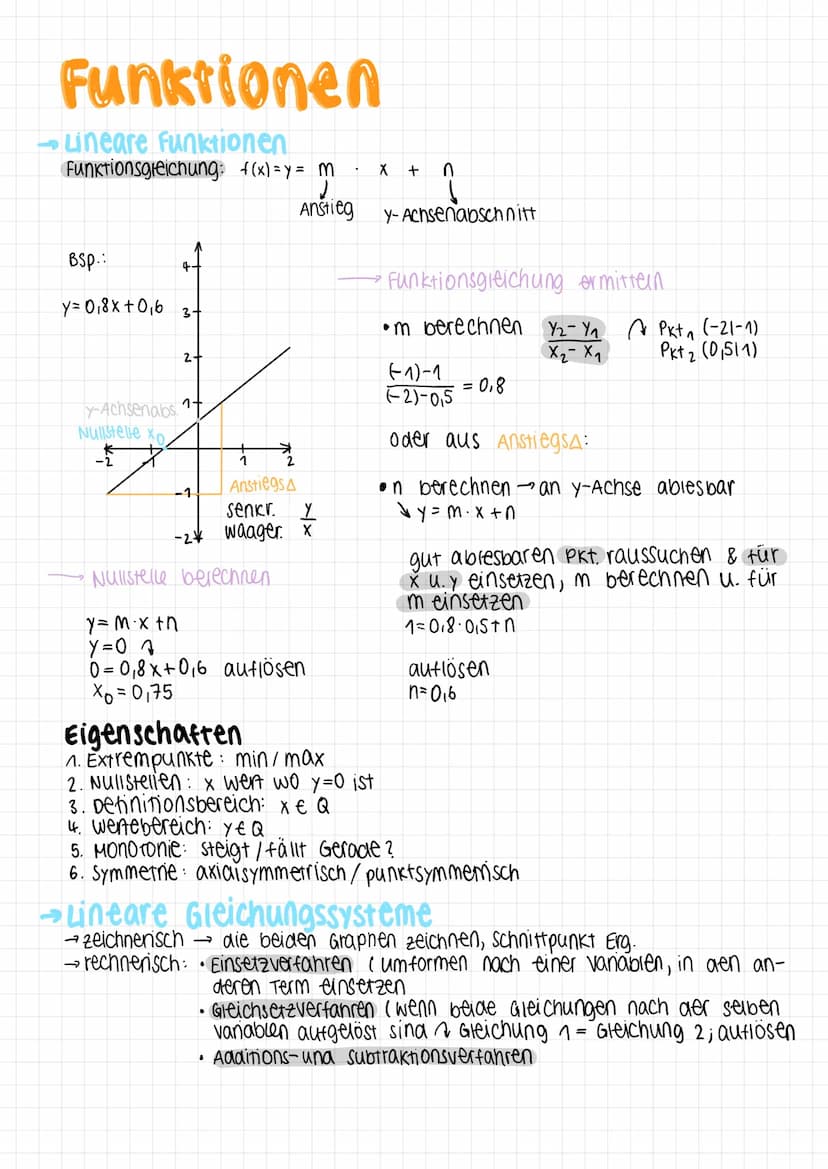 Funktionen
→ Lineare Funktionen
Funktionsgleichung: f(x) = y = m · x + n
Anstieg y-Achsenabschnitt
Bsp.:
y = 0,8x + 0,6
4
3
2
1
y-Achsenabs.
Nullstelle x₀
-2 -1 1 2
-1
-2
Anstiegs∆
senkr. y
waager. x
→ Funktionsgleichung ermitteln
• m berechnen y₂ - y₁ / x₂ - x₁ ↷ Pkt₁ (-2|-1)
Pkt₂ (0,5|1)
(-1)-1 / (-2)-0,5 = 0,8
oder aus Anstiegs∆:
• n berechnen → an y-Achse ablesbar
↘ y = m · x + n
gut ablesbaren Pkt. raussuchen & für
x u. y einsetzen, m berechnen u. für
m einsetzen
1 = 0,8 · 0,5 + n
auflösen
n = 0,6
→ Nullstelle berechnen
y = m · x + n
y = 0
0 = 0,8x + 0,6 auflösen
x₀ = 0,75
Eigenschaften
1. Extrempunkte: min / max
2. Nullstellen: x wert wo y=0 ist
3. Definitionsbereich: x ∈ Q
4. Wertebereich: y ∈ Q
5. Monotonie: steigt / fällt Gerade?
6. Symmetrie: axialsymmetrisch / punktsymmetrisch
→ Lineare Gleichungssysteme
→ zeichnerisch → die beiden Graphen zeichnen, Schnittpunkt Erg.
→ rechnerisch: • Einsetzverfahren (umformen nach einer Variablen, in den an-
deren Term einsetzen
• Gleichsetzverfahren (wenn beide Gleichungen nach der selben
Variablen aufgelöst sind ↷ Gleichung 1 = Gleichung 2; auflösen
• Additions- und Subtraktionsverfahren